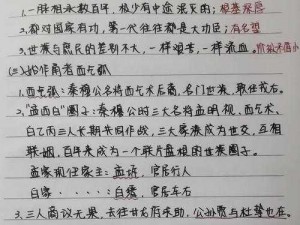 1.一脉相承数百年,极少有中途泯灭的;根基深厚
2.都对国家有功,第一代往往都是大功臣;有名望
3.世族与庶民的差别不大,一样艰苦,一样流血。阶级矛盾小
(三)始作甬者西乞弧
1.西乞弧:秦穆公名将西乞术后裔,名门世族,
2."孟西白"圈子:秦穆公时三大名将孟明视、西乞术、
白乙丙三人长期共同作战,三大家族成为世交,互相
联姻,百年来成为一个联片盘根的世族圈子。
孟家现任家主:孟,官居行人
白家······:白缙,官居车右
3.三人商议无果,去往甘龙府求助,公孙贾与杜挚也在。